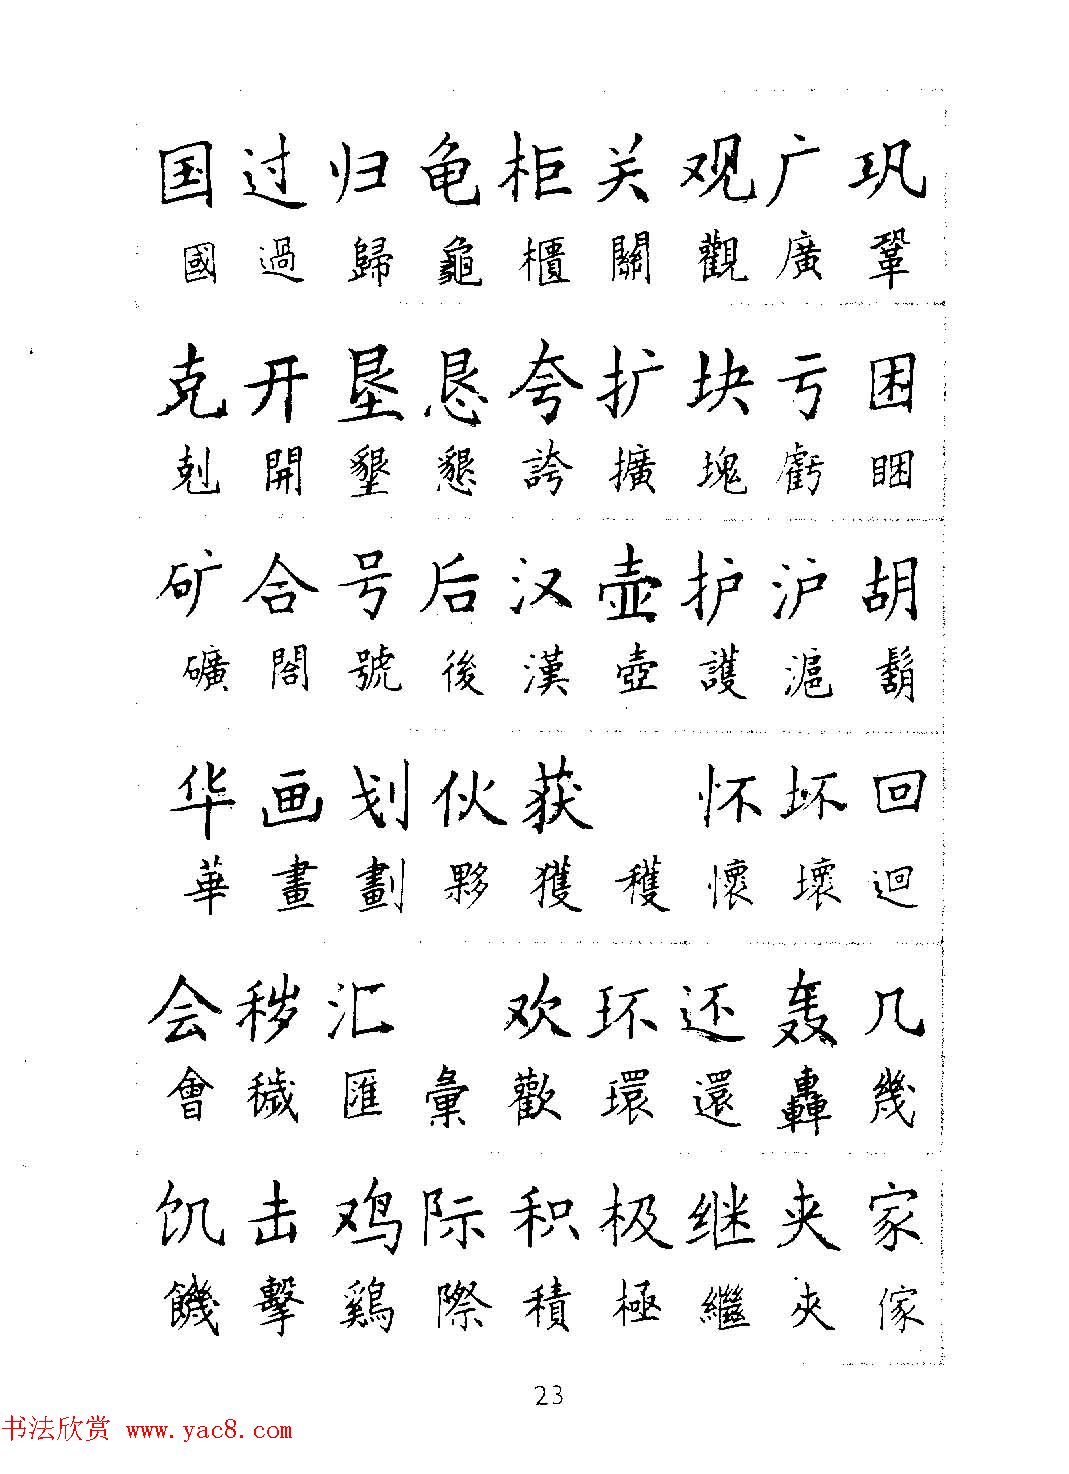 国过归龟柜关观广巩
國過歸龜櫃關觀廣鞏
克开垦恳夸扩块亏困
剋開墾懇誇擴塊虧睏
矿合号后汉壶护沪胡
礦閤號後漢壺護滬鬍
华画划伙获 怀坏回
華畫劃夥獲穫懷壞迴
会秽汇 欢环还轰几
會穢匯彙歡環還轟幾
饥击鸡际积极继夹家
饑擊鷄際積極繼夾傢
23
书法欣赏 www.yac8.com